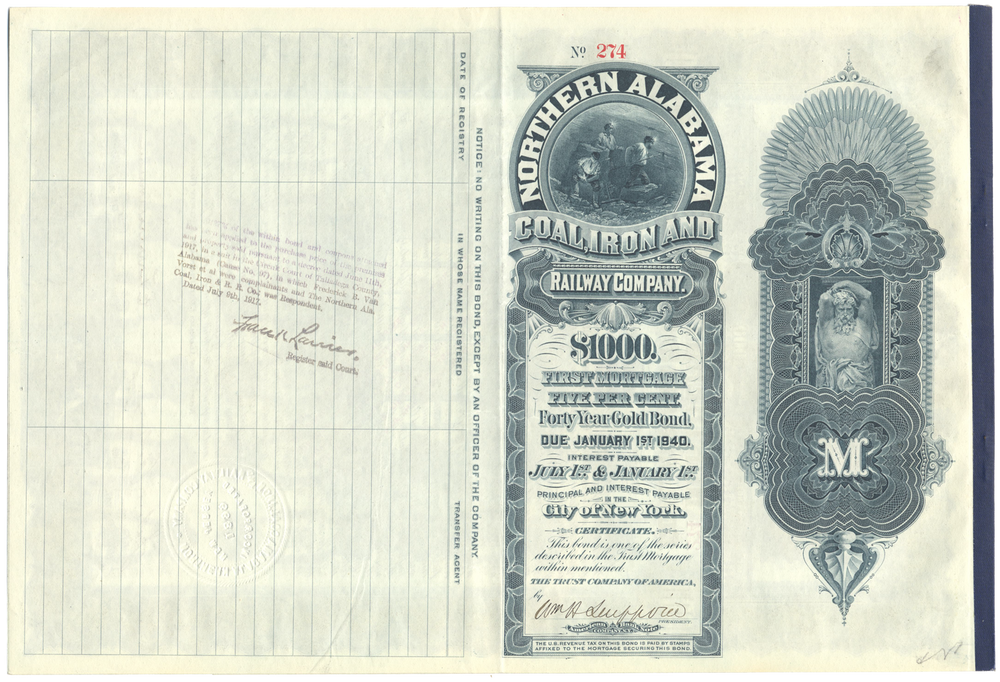 DATE OF REGISTRY
IN WHOSE NAME REGISTERED
TRANSFER AGENT
NOTICE: NO WRITING ON THIS BOND, EXCEPT BY AN OFFICER OF THE COMPANY.
of the within bond and coupons
applied to the purchase
1917, in a suit in the Circuit Court of Talladega County,
Alabama (Cause No. 97), in which Frederick R. Van
Vorst et al were complainants and The Northern Ala.
Coal, Iron & R. R. Co., was Respondent.
Dated July 9th, 1917.
Register said Court.
No 274
NORTHERN ALABAMA
COAL, IRON AND
RAILWAY COMPANY.
$1000.
FIRST MORTGAGE
FIVE PER CENT.
Forty Year Gold Bond,
DUE JANUARY 1ST 1940.
INTEREST PAYABLE
JULY 1ST & JANUARY 1ST
PRINCIPAL AND INTEREST PAYABLE
IN THE
City of New York.
CERTIFICATE.
This bond is one of the series
described in the Trust Mortgage
within mentioned.
THE TRUST COMPANY OF AMERICA,
by
PRESIDENT.
American Bank Note
COMPANY
THE U.S. REVENUE TAX ON THIS BOND IS PAID BY STAMPS
AFFIXED TO THE MORTGAGE SECURING THIS BOND.
M